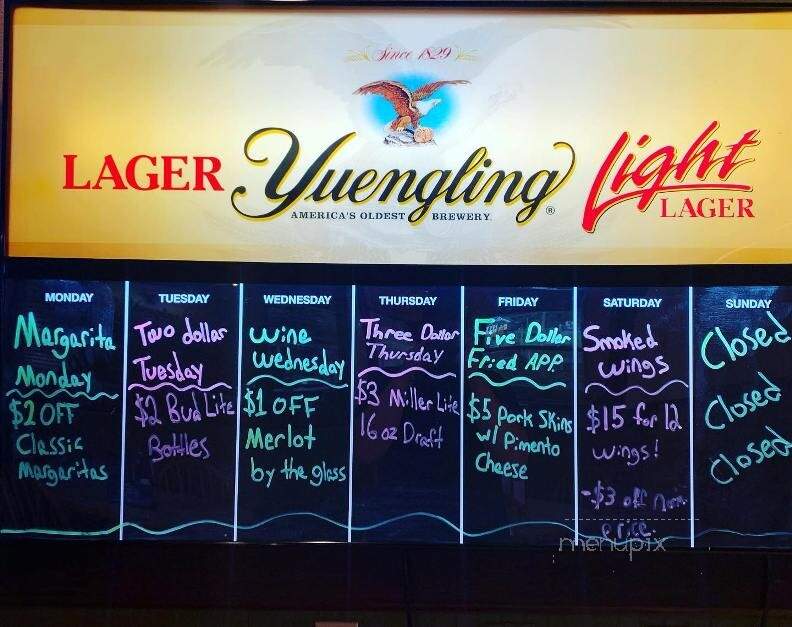 Since 1829
LAGER Yuengling Light
AMERICA'S OLDEST BREWERY ® LAGER
MONDAY
Margarita
Monday
$2 OFF
Classic
Margaritas
TUESDAY
Two dollar
Tuesday
$2 Bud Lite
Bottles
WEDNESDAY
Wine
Wednesday
$1 OFF
Merlot
by the glass
THURSDAY
Three Dollar
Thursday
$3 Miller Lite
16 oz Draft
FRIDAY
Five Dollar
Fried APP.
$5 pork Skins
w/ Pimento
Cheese
SATURDAY
Smoked
wings
$15 for 12
wings!
-$3 off
price.
SUNDAY
Closed
Closed
Closed
menupix